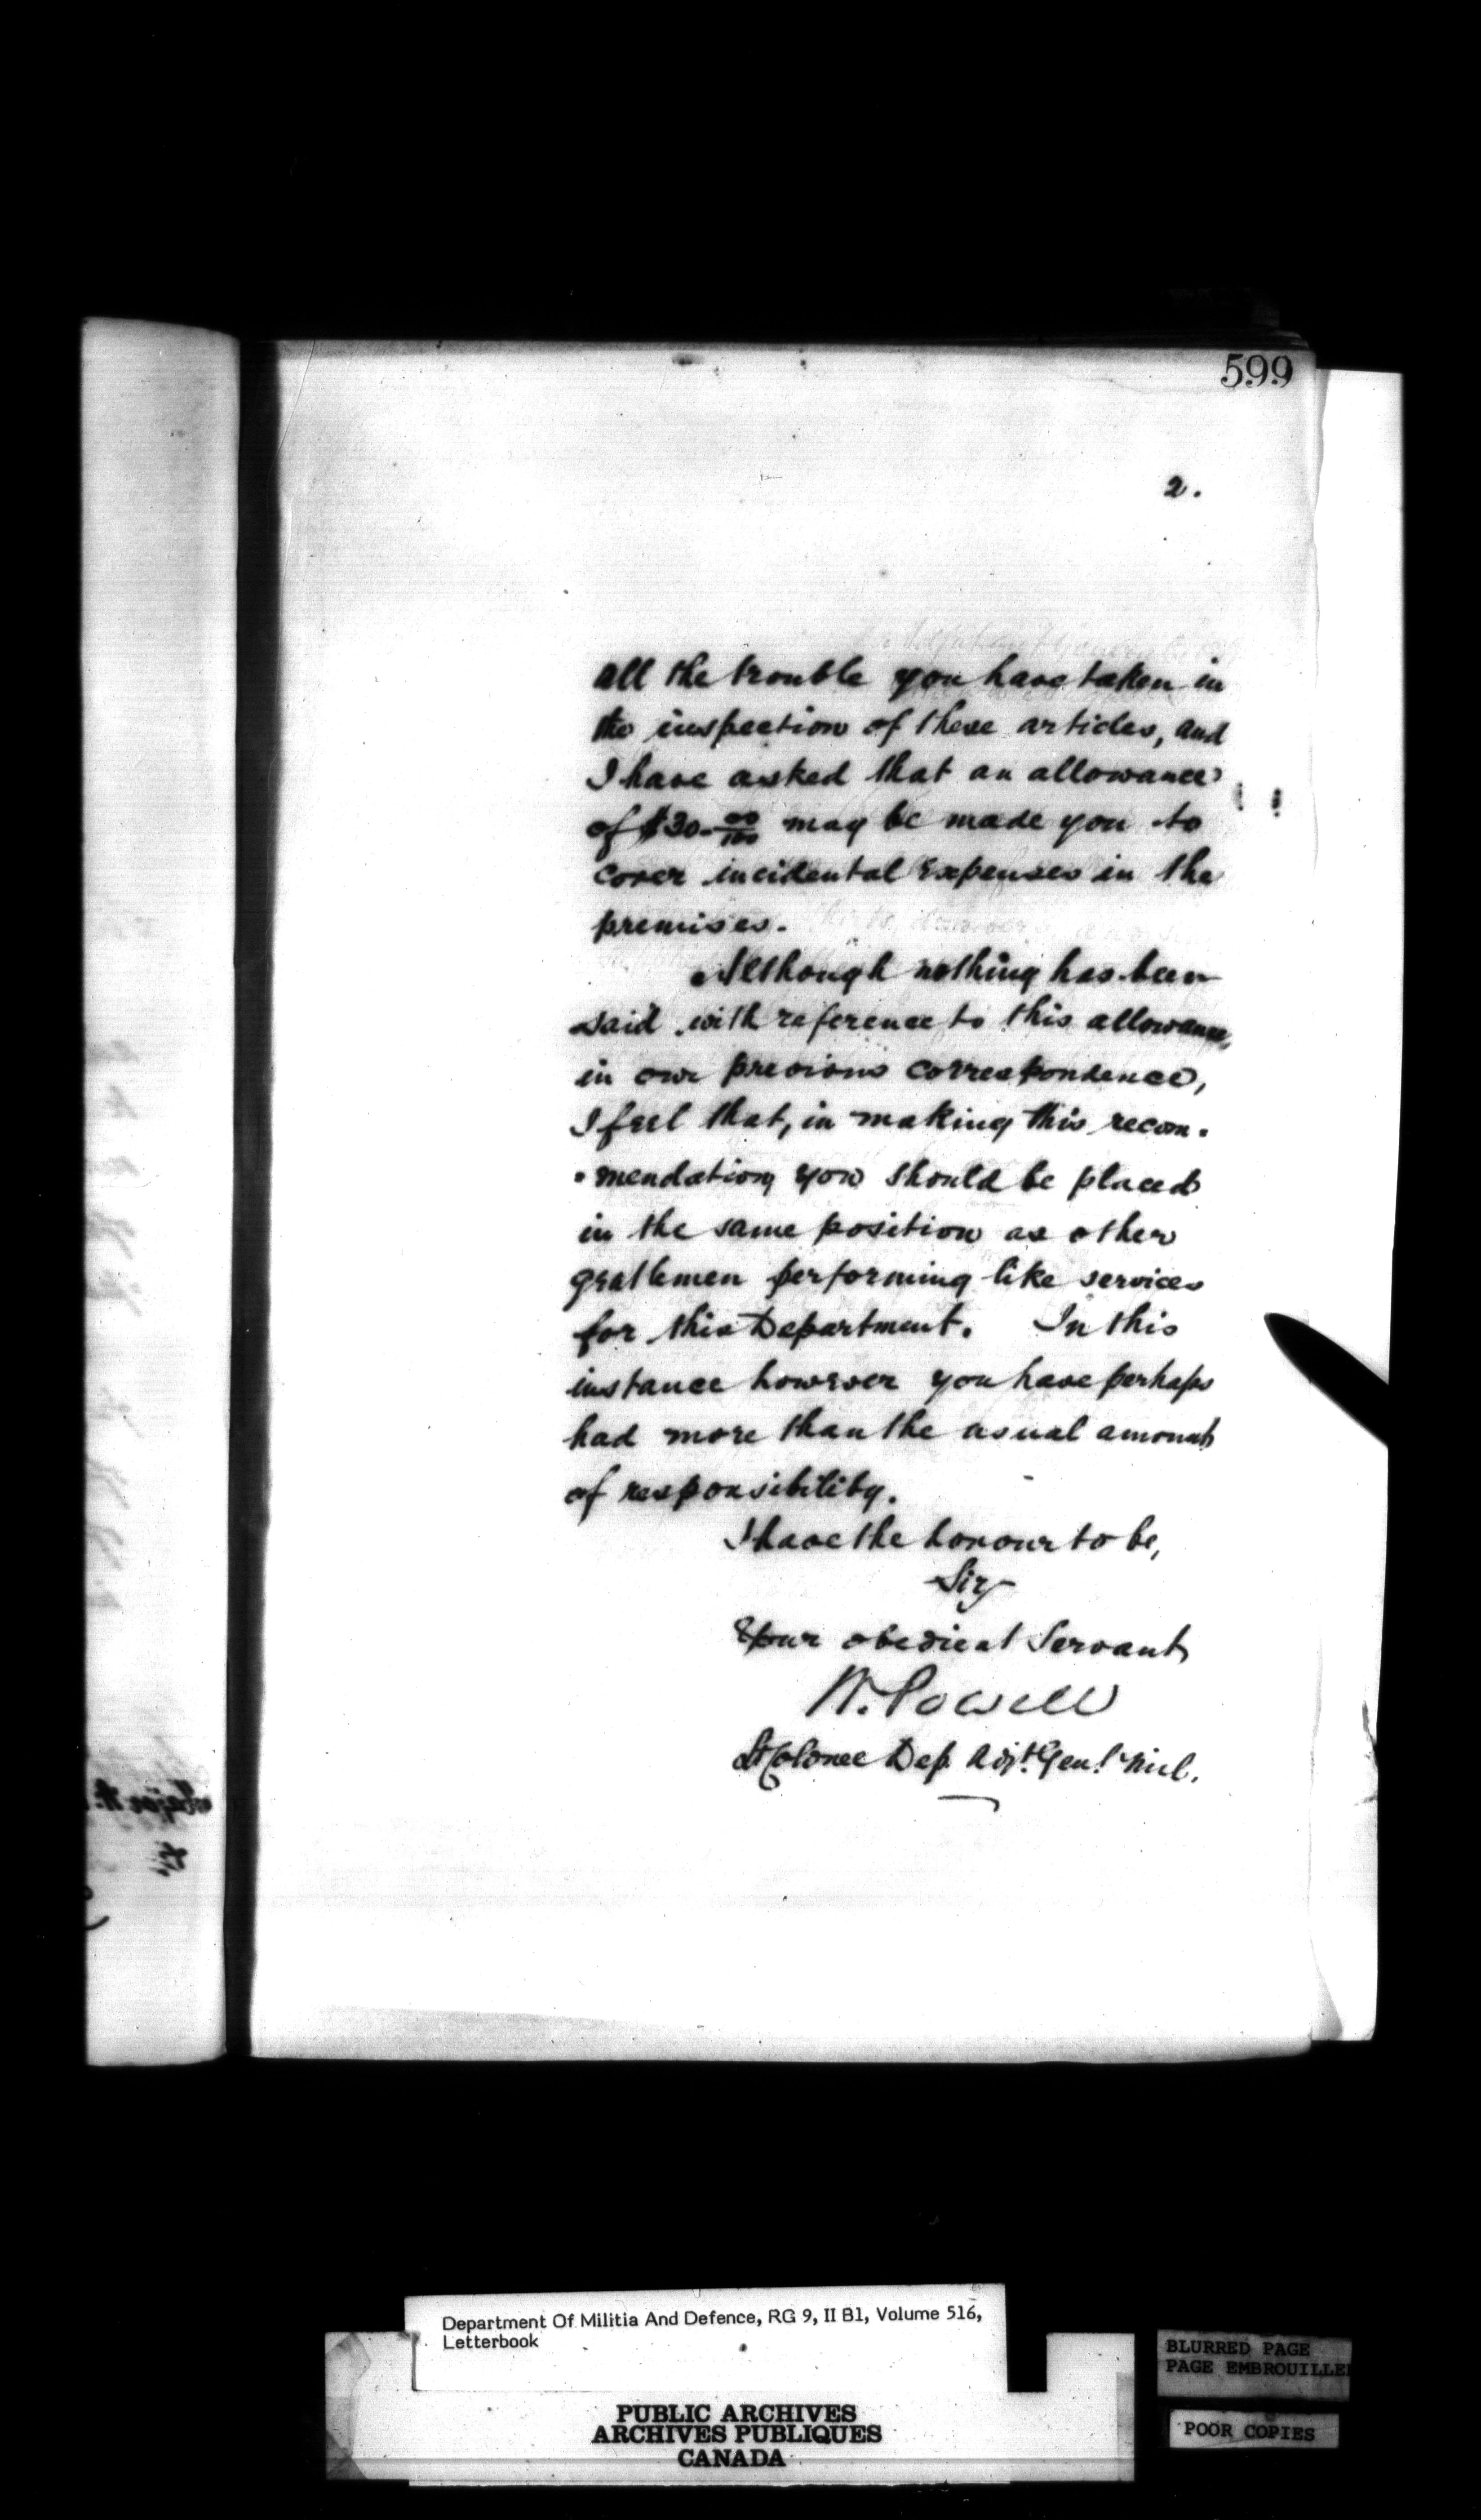 599
2.
all the trouble you have taken in
the inspection of these articles, and
I have asked that an allowance
of $30.00/100 may be made you to
cover incidental expenses in the
premises.
Although nothing has been
said with reference to this allowance,
in our previous correspondence,
I feel that, in making this recom-
-mendation, you should be placed
in the same position as other
gentlemen performing like services
for this Department. In this
instance however you have perhaps
had more than the usual amount
of responsibility.
I have the honour to be,
Sir
Your obedient Servant
W. Powell
Lt Colonel Dep. Adjt. Genl. Mil.
Major
Department Of Militia And Defence, RG 9, II B1, Volume 516,
Letterbook
PUBLIC ARCHIVES
ARCHIVES PUBLIQUES
CANADA
BLURRED PAGE
PAGE EMBROUILLE
POOR COPIES